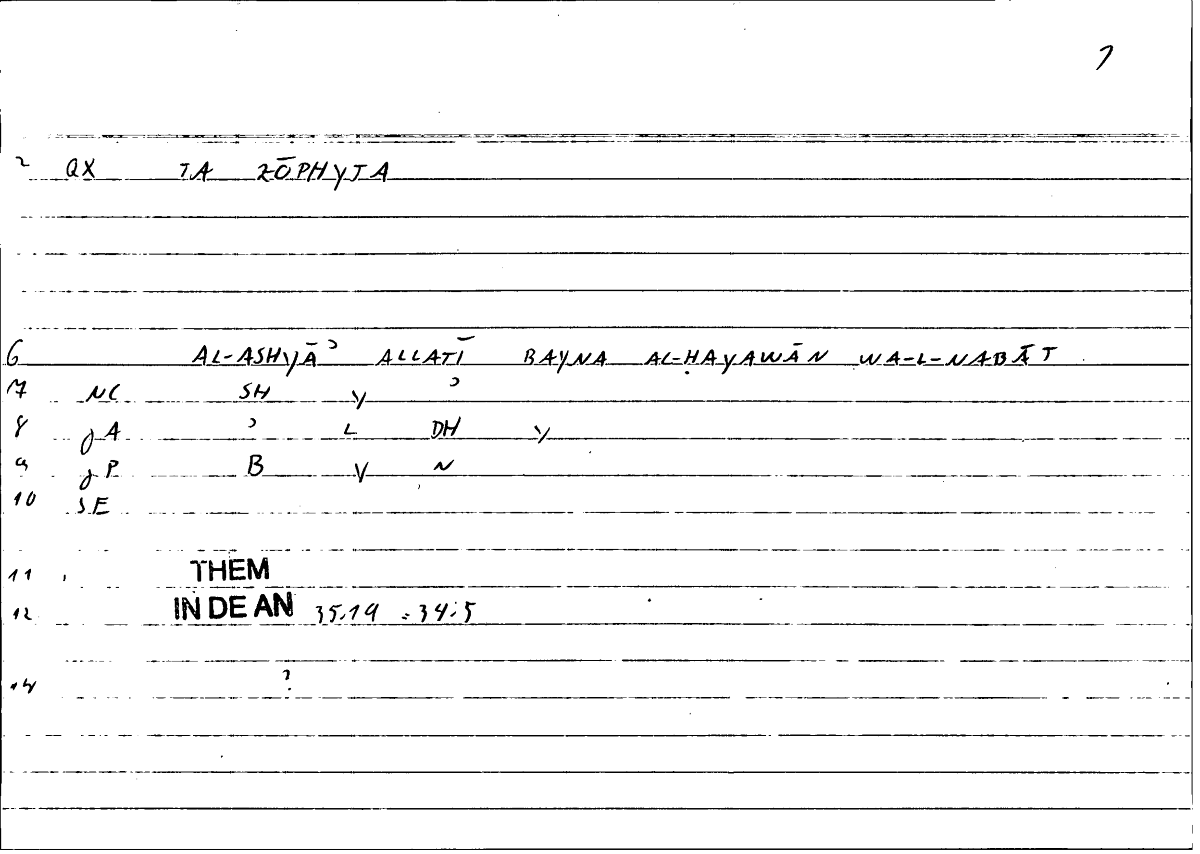 7
2 QX TA ZŌPHYTA
6 AL-ASHYĀʾ ALLATĪ BAYNA AL-ḤAYAWĀN WA-L-NABĀT
7 NC SH Y ʾ
8 gA ʾ L DH Y
9 gP B Y N
10 SE
11 THEM
12 IN DE AN 35.19 = 34.5
14 ?